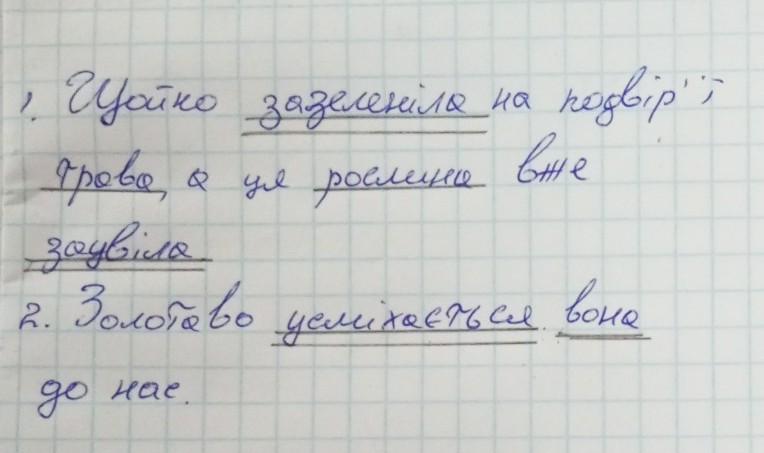 1. Щойно зазеленіла на подвір'ї
трава, а ця рослина вже
зацвіла
2. Золотаво усміхається вона
до нас.